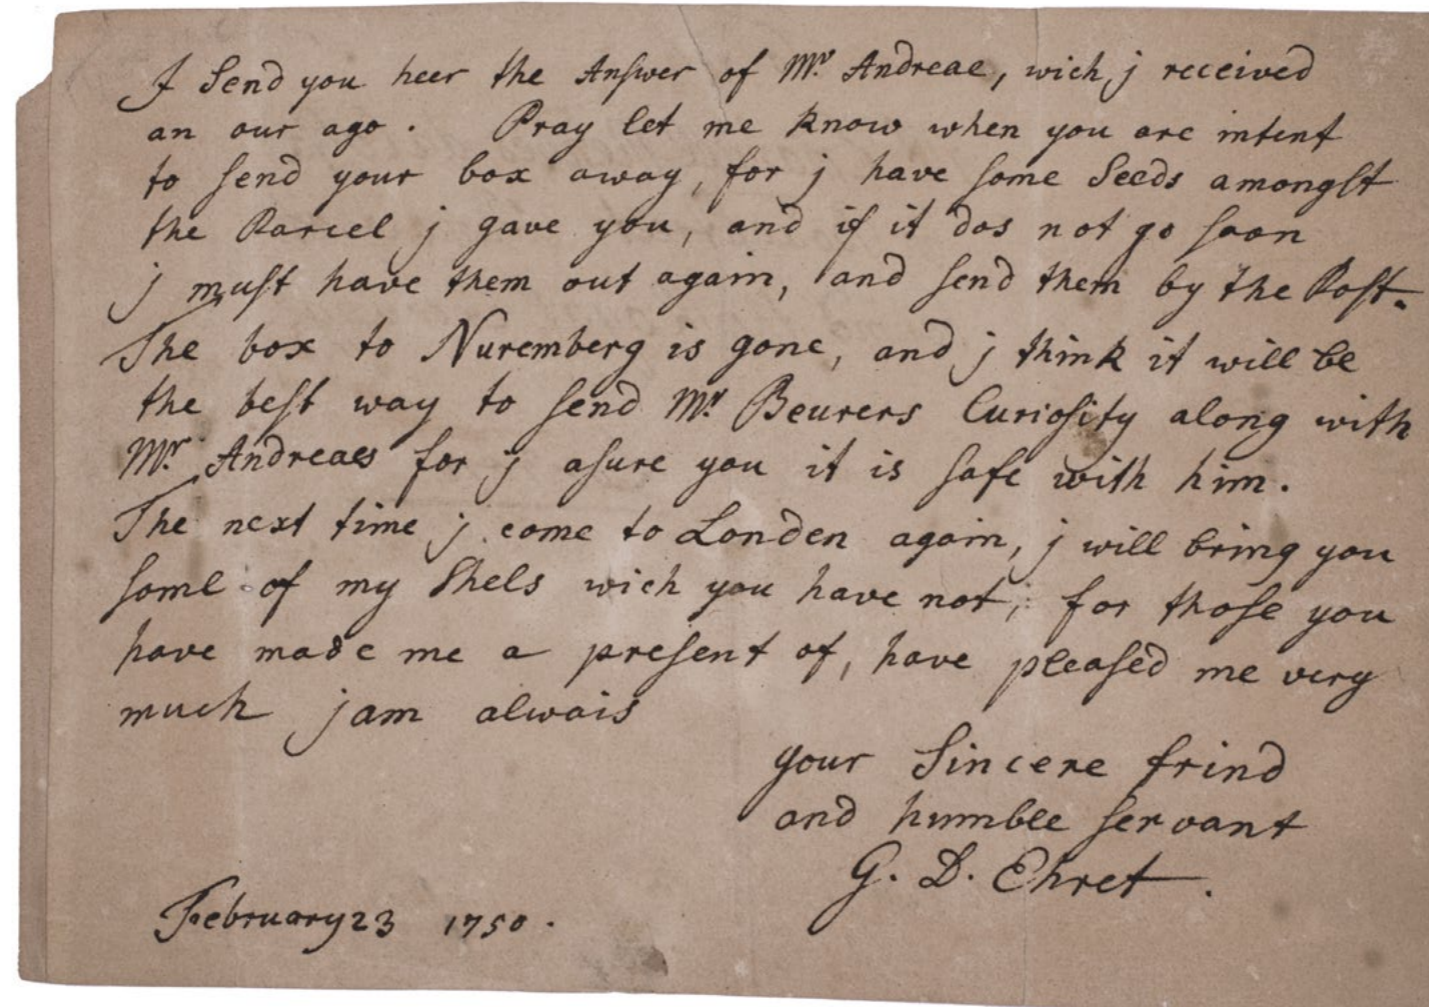 J Send you heer the Anſwer of Mr. Andreae, wich j received
an our ago. Pray let me know when you are intent
to ſend your box away, for j have ſome Seeds amongſt
the Parcel j gave you, and if it dos not go ſoon
j muſt have them out again, and ſend them by the Poſt.
The box to Nuremberg is gone, and j think it will be
the beſt way to ſend Mr. Beurers Curioſity along with
Mr. Andreaes for j aſure you it is ſafe with him.
The next time j come to Londen again, j will bring you
ſome of my Shels wich you have not; for thoſe you
have made me a preſent of, have pleaſed me very
much jam alwais
your Sincere frind
and humble ſervant
G. D. Ehret.
February 23 1750.